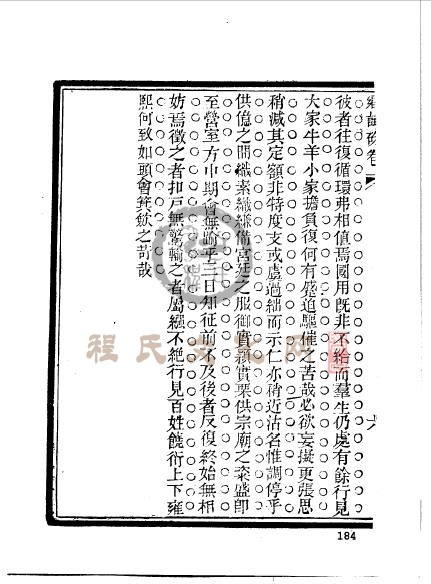 彼者往復循環弗相值焉國用既非不給而羣生仍處有餘行見
大家牛羊小家擔負復何有蹙迫驅催之苦哉必欲妄擬更張思
稍減其定額非特度支或虞過絀而示仁亦稍近沽名惟調停乎
供億之間織素織縑備宮廷之服御實穎實栗供宗廟之粢盛即
至營室方中期會無踰乎三日知征前不及後者反復終始無相
妨焉徵之者扣戶無驚輸之者屬繦不絕行見百姓饒衍上下雍
熙何致如頭會箕斂之苛哉
程氏文化网
184